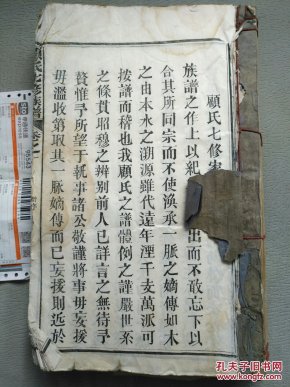 顧氏七修
族譜之作上以紀
出而不敢忘下以
合其所同宗而不使渙承一脈之嫡傳如木
之由本水之溯源雖代遠年湮千支萬派可
按譜而稽也我顧氏之譜體例之謹嚴世系
之條貫昭穆之辨别前人已詳言之無待予
贅惟予所望于執事諸公敬謹將事毋妄援
毋濫收第取其一脈嫡傳而已妄援則近於
氏七修族譜
卷之一